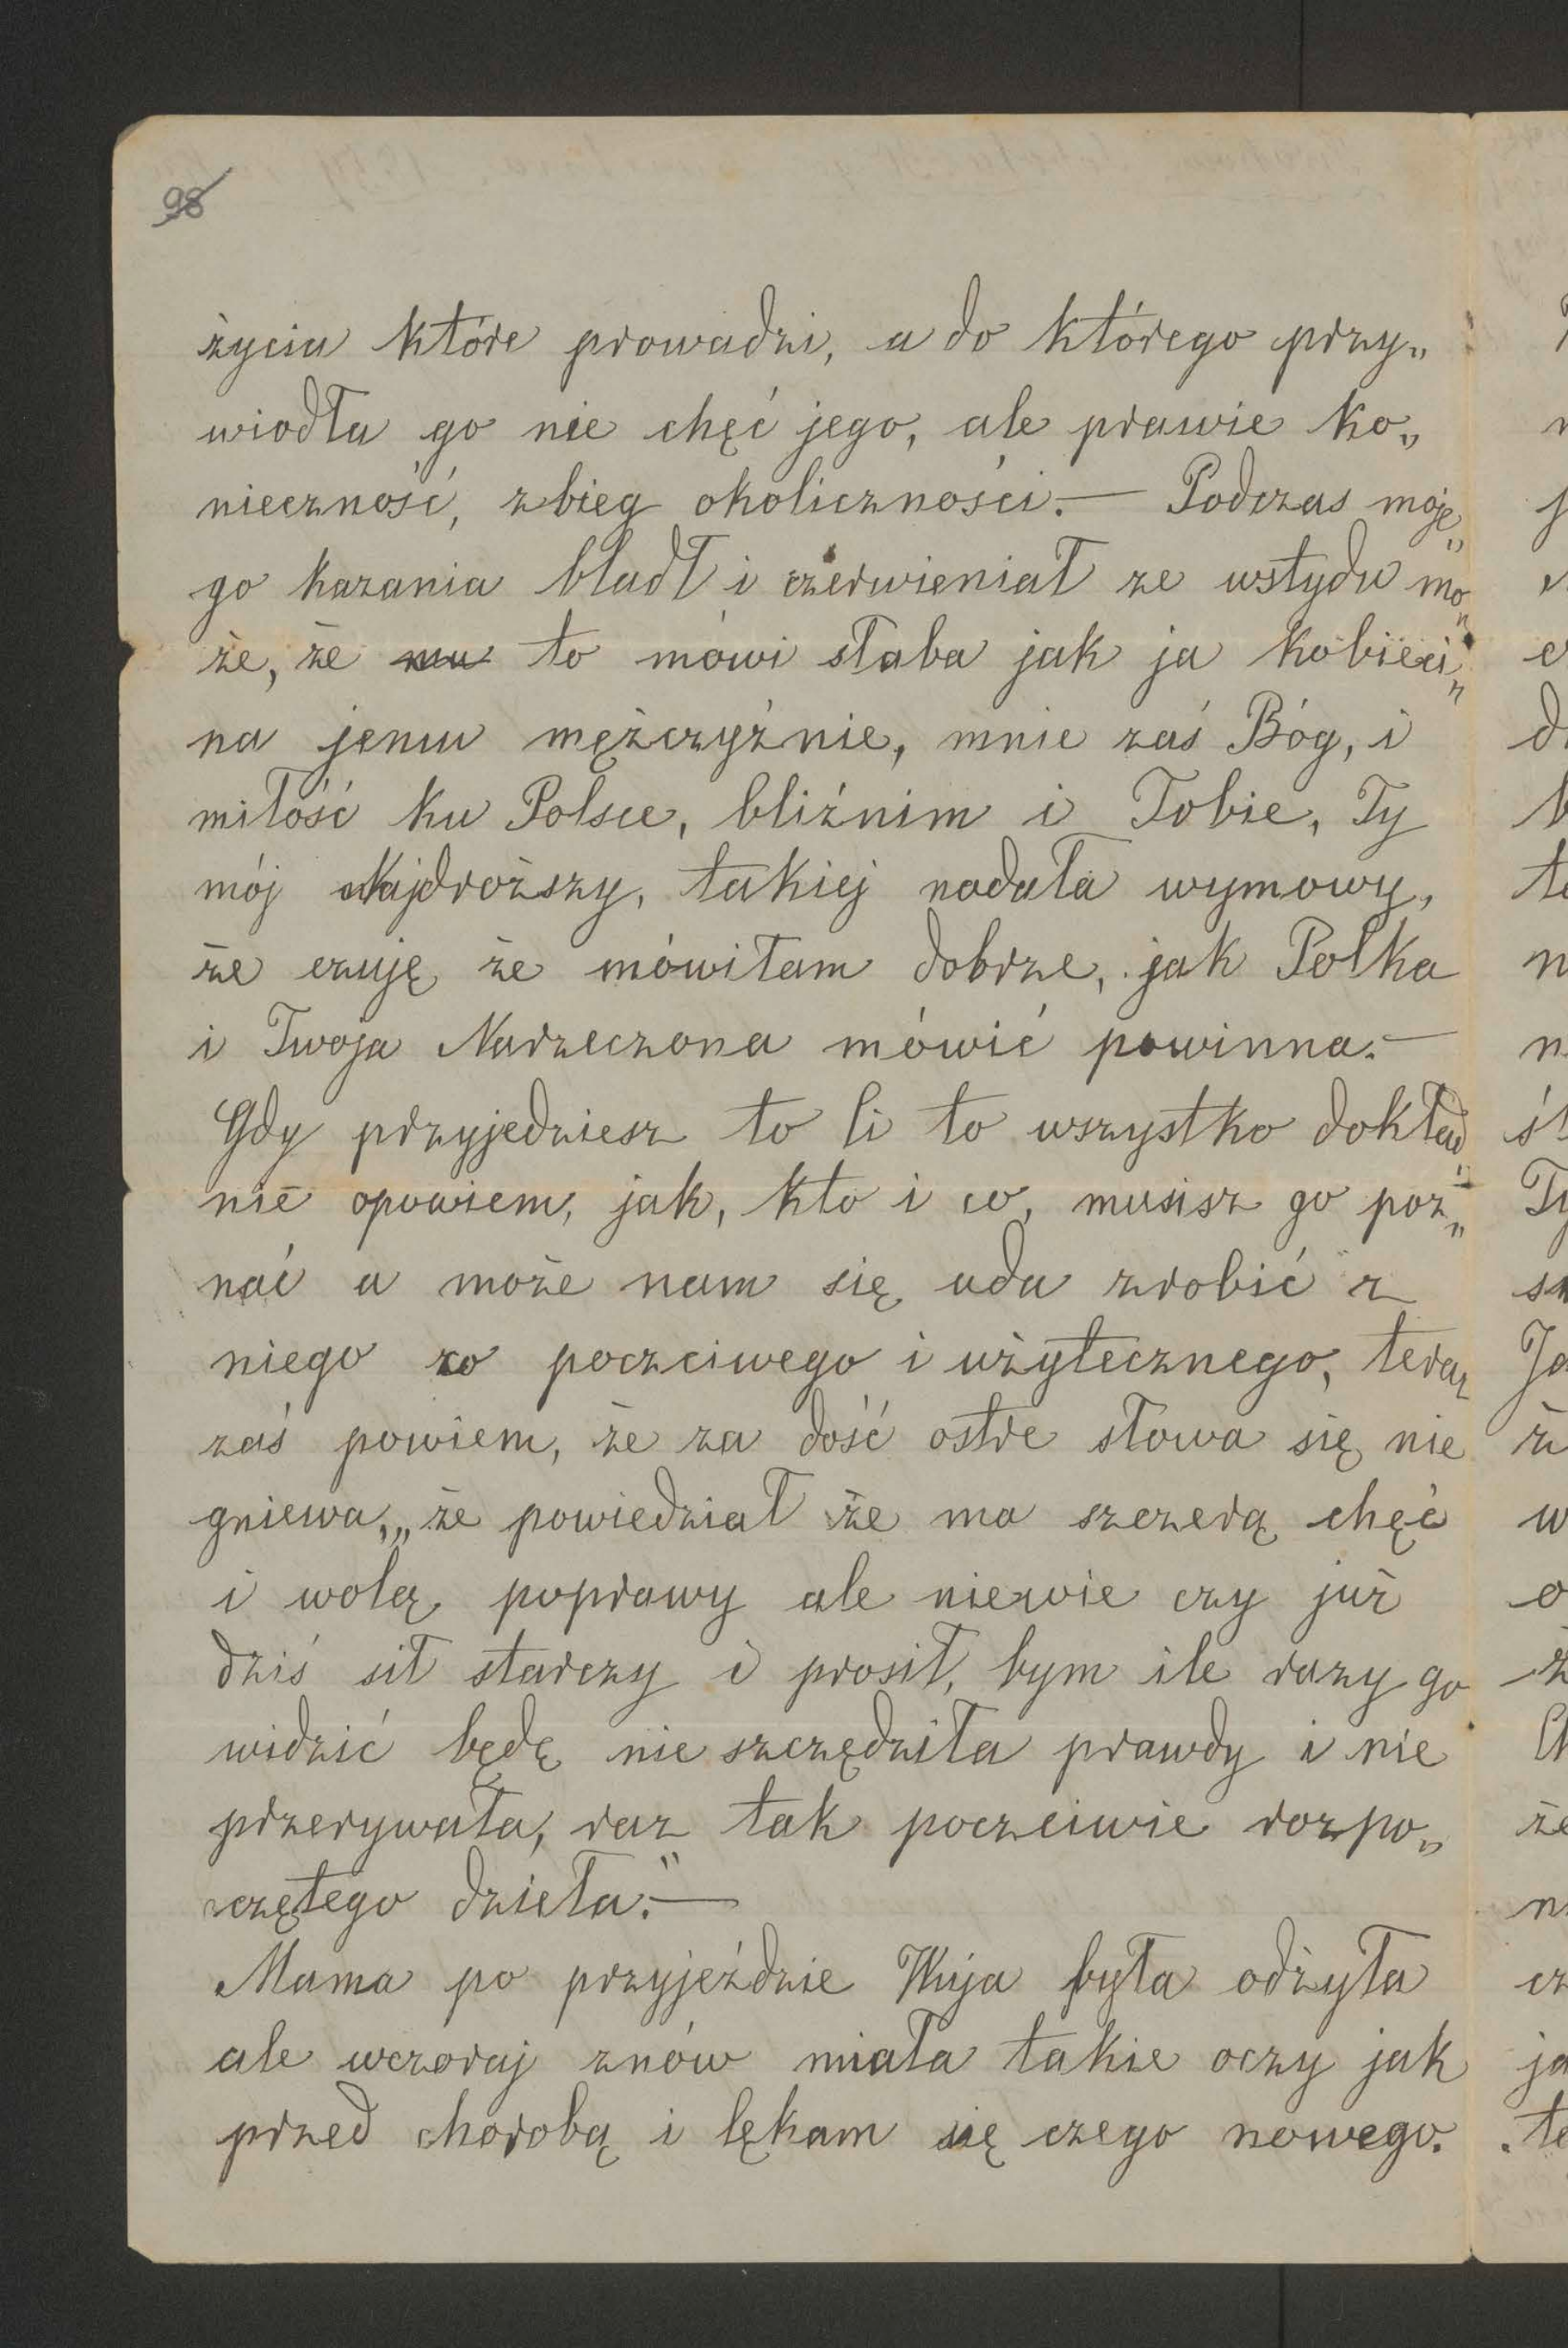 98
życia które prowadzi, a do którego przy„
wiodła go nie chęć jego, ale prawie ko„
nieczność, zbieg okoliczności.— Podczas moje„
go kazania bladł i czerwieniał ze wstydu mo„
że, że mu to mówi słaba jak ja kobieci„
na jemu mężczyźnie, mnie zaś Bóg, i
miłość ku Polsce, bliźnim i Tobie, Ty
mój Najdroższy, takiej nadała wymowy,
że czuję że mówiłam dobrze, jak Polka
i Twoja Narzeczona mówić powinna.—
Gdy przyjedziesz to Ci to wszystko dokład„
nie opowiem, jak, kto i co, musisz go poz„
nać a może nam się uda zrobić z
niego co poczciwego i użytecznego, teraz
zaś powiem, że za dość ostre słowa się nie
gniewa, „że powiedział że ma szczerą chęć
i wolą poprawy ale niewie czy już
dziś sił starczy i prosił, bym ile razy go
widzić będę nie szczędziła prawdy i nie
przerywała, raz tak poczciwie rozpo„
czętego dzieła."—
Mama po przyjeździe Wuja była odżyła
ale wczoraj znów miała takie oczy jak
przed chorobą i lękam się czego nowego.